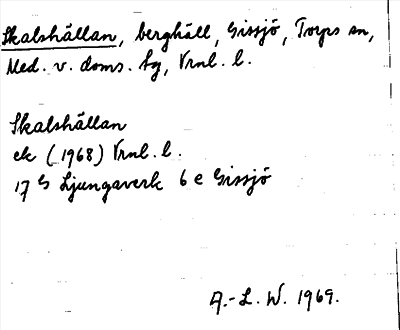 Skalshällan, berghäll, Gissjö, Torps sn,
Med. v. doms. hg, Vrnl. l.
Skalshällan
ek (1968) Vrnl. l.
17 G Ljungaverk 6 e Gissjö
A.-L. W. 1969.